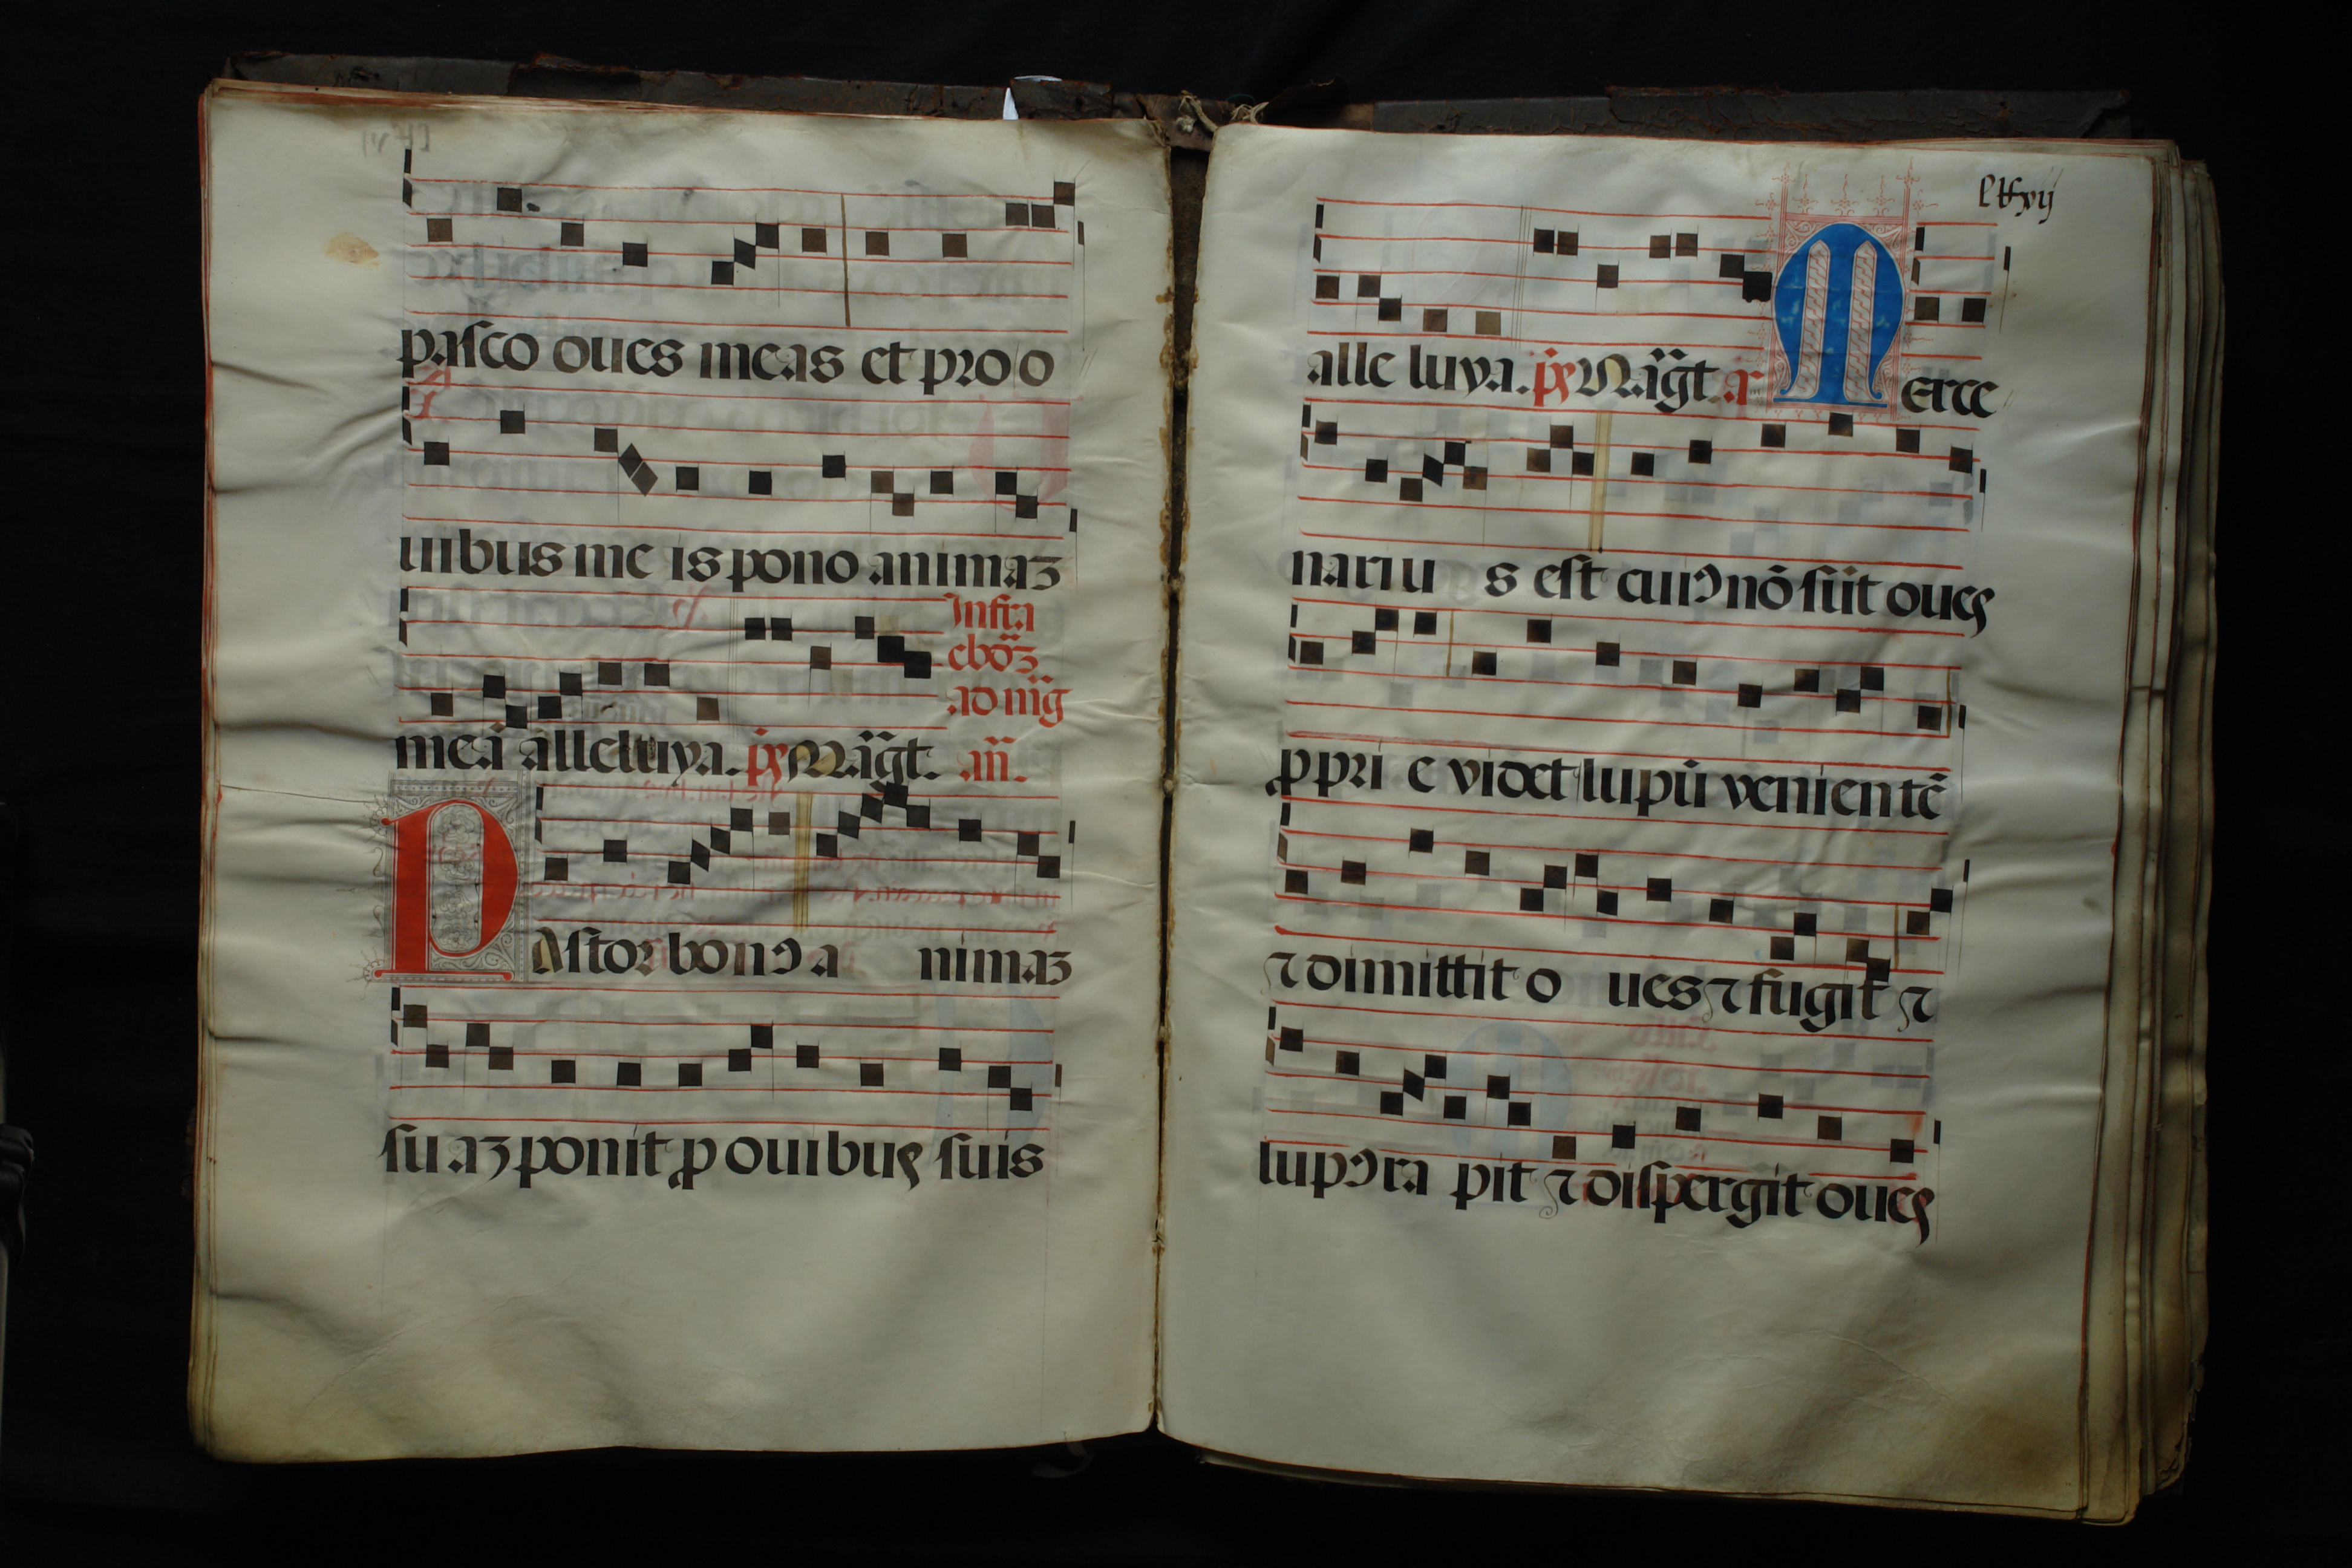 pasco oues meas et pro o
uibus me is pono animaꝫ
Infra
ebõꝫ
ad mg̃
meã alleluya. p̱s Mag̃t. añ.
PAstor bonꝯ a nimaꝫ
su aꝫ ponit ꝓ ouibus suis
alle luya. p̱s Mag̃t. a
MErce
nariu s est cuiꝯ nõ sũt oues
ꝓpri e videt lupũ venientẽ
⁊ dimittit o ues ⁊ fugit ⁊
lupꝯ ra pit ⁊ dispergit oues